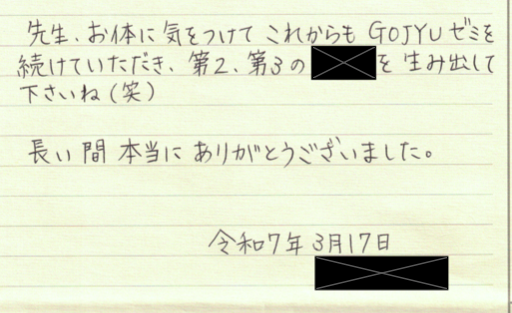 先生、お体に気をつけてこれからもGOJYUゼミを
続けていただき、第2、第3の を生み出して
下さいね(笑)
長い間本当にありがとうございました。
令和7年3月17日